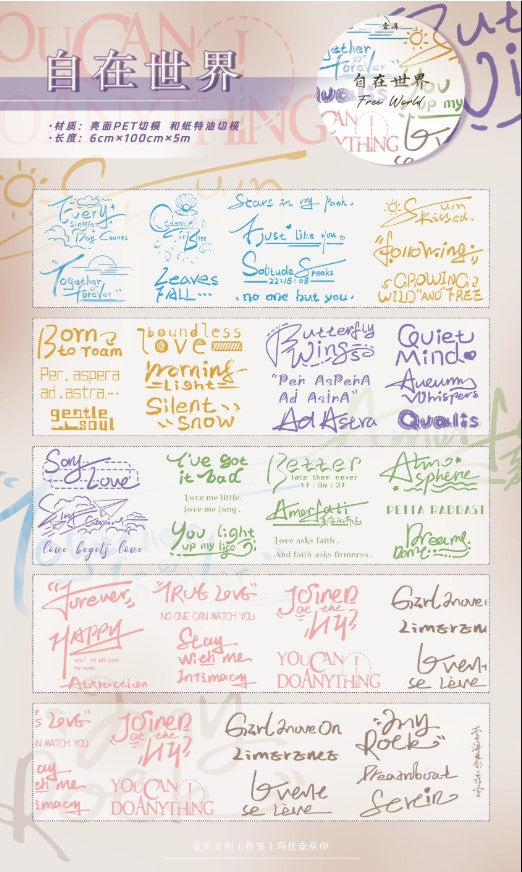 自在世界
·材质：亮面PET切模 和纸特油切模
·长度：6cm×100cm×5m
壹洱
Together
or
forever
自在世界
Free World
Qualis
You light
up my
YOU CAN
DO ANYTHING
Every
Single
Dog Counts
Together
or
forever
Leaves
FALL...
Stars in my Poch.
Just like you.
Solitude Speaks
22:15:08
.no one but you.
Sun
Kissed.
"following"
GROWING
WILD "AND" FREE
Born
to roam
Per. aspera
ad. astra...
gentle
soul
boundless
love
Morning
Light
Silent
Snow
Butterfly
Wings
"Per AsPerA
Ad AstrA"
Ad Astra
Quiet
Mind
Autumn
Whispers
Qualis
Say
Love
love begets love
I've got
it bad
Love me little.
Love me long.
You light
up my life
Better
late then never
17:06:37
Amorfati
Love asks faith.
And faith asks firmness.
Atmo
sphere
PETTA RADDAST
Dreame
"Forever,
HAPPY
you're all over
my eyes
Attraction
"TRUE Love"
NO ONE CAN MATCH YOU
Stay
with me
Intimacy
Joined
at the
hip?
YOU CAN
DO ANYTHING
Girl move
Limeren
Le vene
se Lève
s Love"
N MATCH YOU
ay
th me
imacy
Joined
at the
hip?
YOU CAN
DO ANYTHING
Girl move On
Limerence
Le vene
se Lève
"My
Rock"
Dreamboat
Serein
壹洱文创工作室丨玛仕金承印